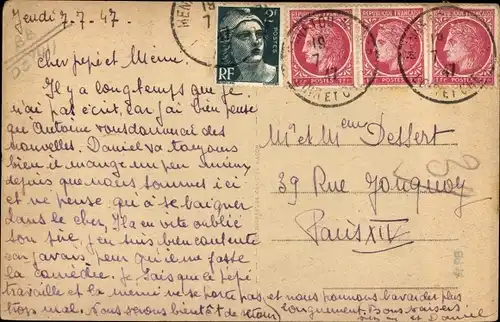 Jeudi 7.7.47
cher pepe et Mémé.
Il y a longtemps que je
n'ai pas écrit, car j'ai bien pensé
que Antoine vous donnerait des
nouvelles. Daniel va toujours
bien il mange un peu mieux
depuis que nous sommes ici
et ne pense qu'a se baigner
dans le cher, Il a vite oublié
son père, j'en suis bien contente
car j'avais peur qu'il me fasse
la comédie. Je sais que le pépé
travaille et la mémé ne se porte pas
trop mal. Nous serons bientôt de retour
et nous pourrons bavarder plus
longuement. Bons Baisers
et Daniel
2F
POSTES
RF
RÉPUBLIQUE FRANÇAISE
1F POSTES 1F
POSTES
MEN
19
7
47
LOIR ET CHER
Mr et Mme Dessert
39 Rue Jonquoy
Paris XIV